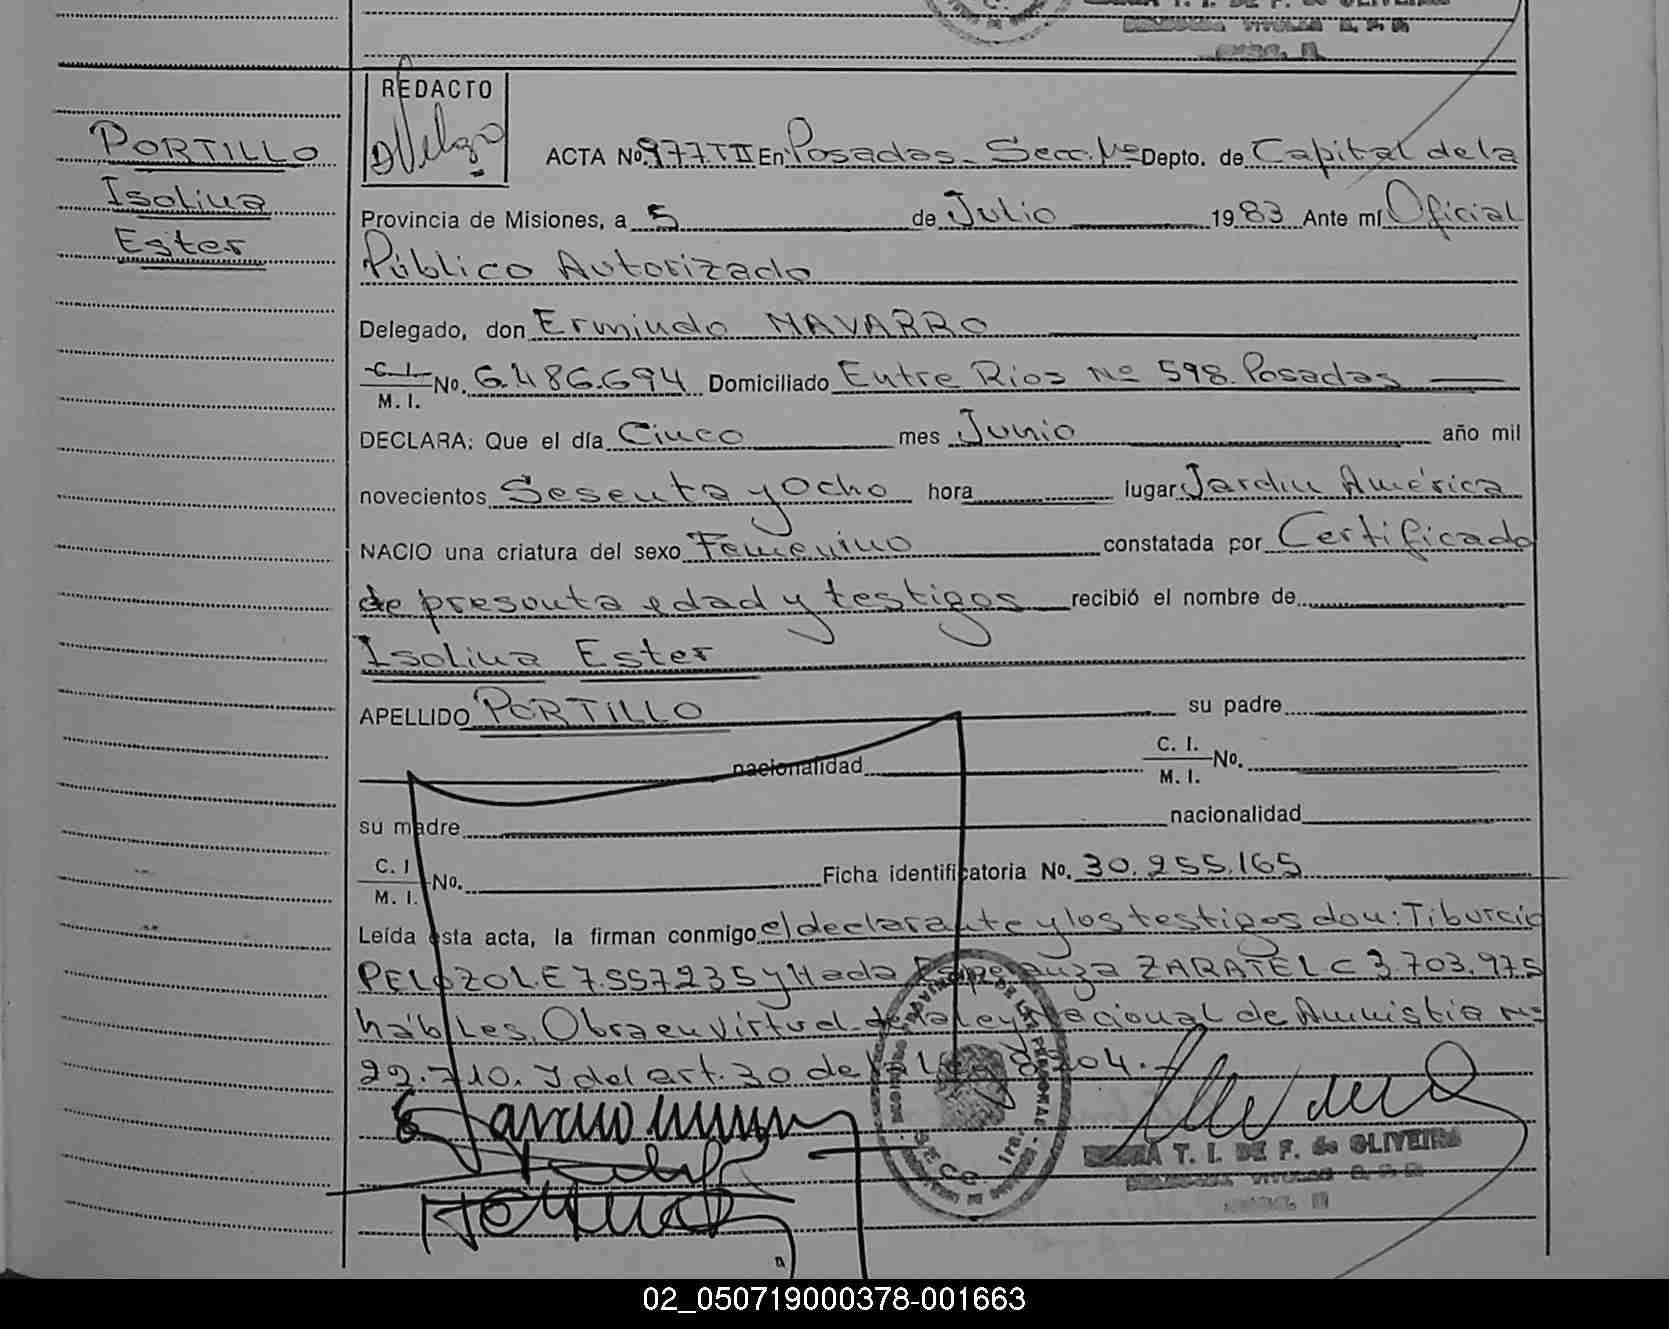 REDACTO
PORTILLO
Isolina
Ester
ACTA No. 977 T II En Posadas. Secc. 1ra Depto. de Capital de la
Provincia de Misiones, a 5 de Julio 1983 Ante mí Oficial
Público Autorizado
Delegado, don Ermindo NAVARRO
C. I.
M. I. No. 6.486.694 Domiciliado Entre Rios Nº 598. Posadas
DECLARA: Que el día Cinco mes Junio año mil
novecientos Sesenta y Ocho hora lugar Jardin América
NACIO una criatura del sexo Femenino constatada por Certificado
de presunta edad y testigos recibió el nombre de
Isolina Ester
APELLIDO PORTILLO su padre
nacionalidad C. I.
M. I. No.
su madre nacionalidad
C. I
M. I. No. Ficha identificatoria No. 30.255.165
Leída esta acta, la firman conmigo el declarante y los testigos don: Tiburcio
PELOZO L.E 7.557235 y Heda Esperanza ZARATE L C 3.703.975
hábiles. Obra en virtud de la ley Nacional de Amnistia Nº
22.710. y del art. 30 de la Ley
T. I. DE F. de OLIVEIRA
02_050719000378-001663